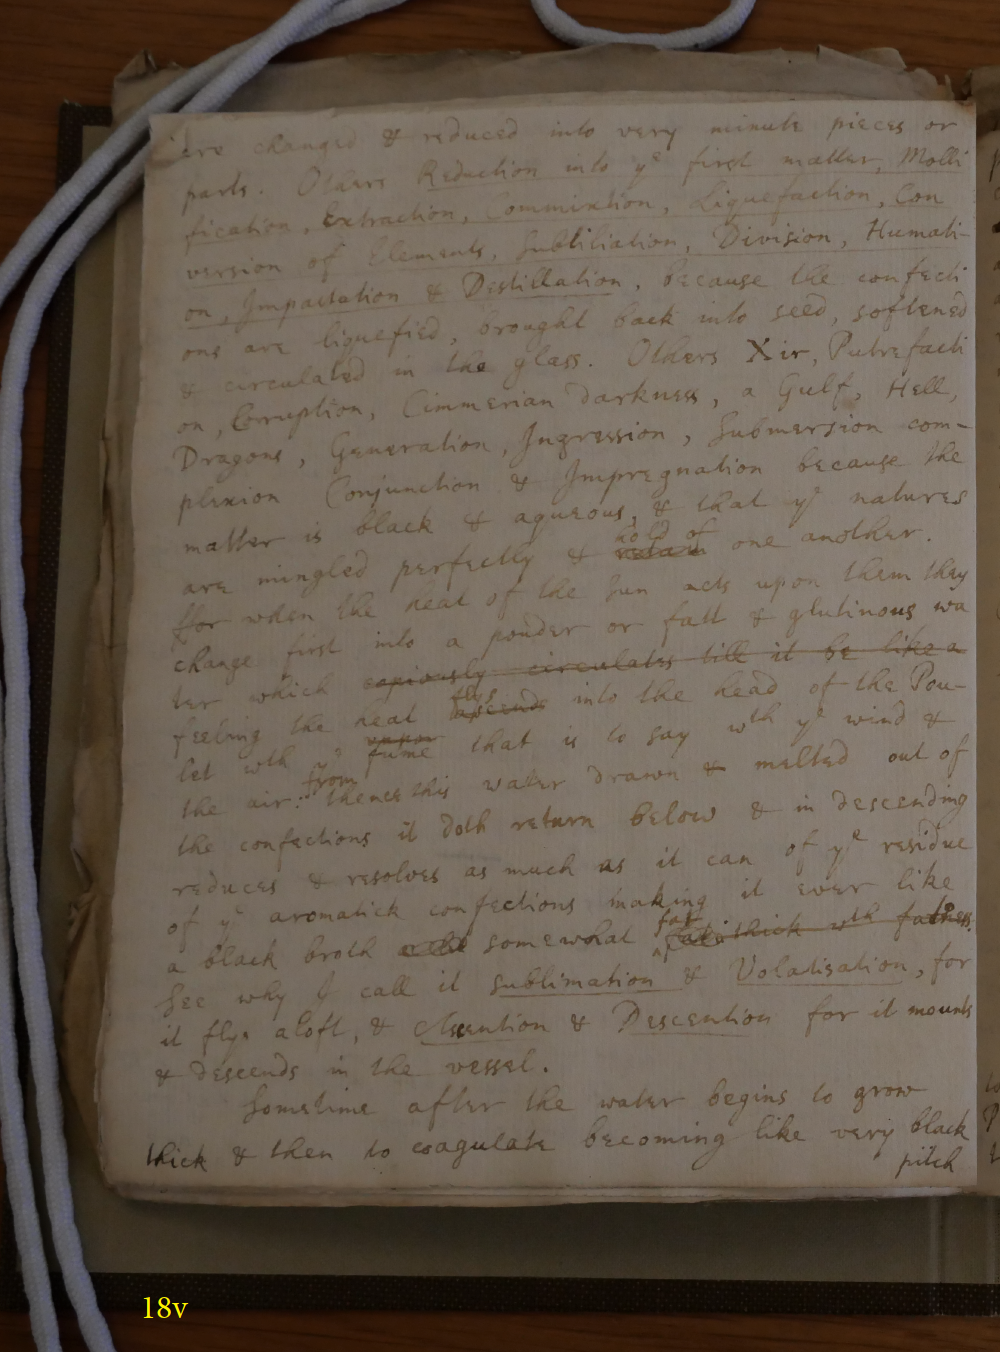 are changed & reduced into very minute pieces or
parts. Others Reduction into ye first matter, Molli
fication, Extraction, Commixtion, Liquefaction, Con
version of Elements, Subtiliation, Division, Humati-
on, Impastation & Destillation, because the confecti
ons are liquefied, brought back into seed, softened
& circulated in the glass. Others Xir, Putrefacti
on, Corruption, Cimmerian darkness, a Gulf, Hell,
Dragons, Generation, Ingression, Submersion com-
plexion Conjunction & Impregnation because the
matter is black & aqueous, & that ye natures
are mingled perfectly & hold of one another.
ffor when the heat of the Sun acts upon them they
change first into a pouder or fatt & glutinous wa
ter which copiously circulates till it be like a
feeling the heat flys ascends into the head of the Pou-
let wth ye vapor fume that is to say wth ye wind &
the air. from thence this water drawn & melted out of
the confections it doth return below & in descending
reduces & resolves as much as it can of ye residue
of ye aromatick confections making it ever like
a black broth somewhat fat thick wth fatness.
See why I call it sublimation & Volatisation, for
it flys aloft, & Ascention & Descention for it mounts
& descends in the vessel.
Sometime after the water begins to grow
thick & then to coagulate becoming like very black
pitch
18v